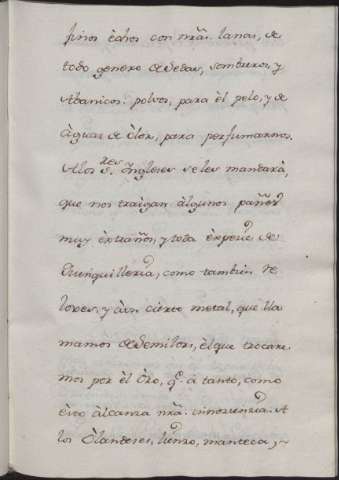 finos èchos con nr̃as. lanas, de
todo genero de Sedas, sombreros, y
Abanicos: polvos, para èl pelo, y de
àguas de òlor, para perfumarnos.
A los S.res Ingleses se les mandarà,
que nos traigan àlgunos paños
muy èxtraños, y toda èxpecie de
Quinquilleria, como tambien Re
loxes, y àun cierto metal, que lla
mamos de Semilor, èl que trocare
mos por èl Òro, q.e à tanto, como
èsto àlcanza nr̃a. innocencia. A
los Òlandeses, lienzo, manteca, y